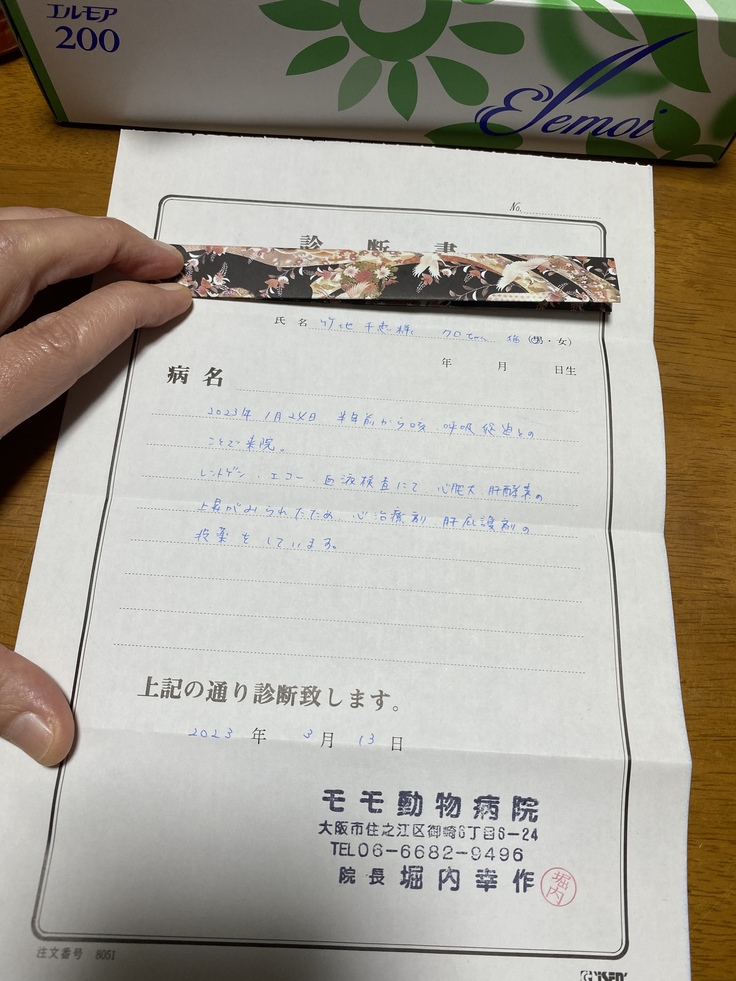 エルモア
200
Elemoi
No.
診断書
氏名 様 クロちゃん (男・女)
年 月 日生
病名
2023年 1月24日 半年前から咳 呼吸 との
ことで来院。
レントゲン・エコー 血液検査にて 心肥大 肝酵素の
上昇がみられたため 心治療剤 肝庇護剤の
投薬をしています。
上記の通り診断致します。
2023年 3月 13日
モモ動物病院
大阪市住之江区御崎6丁目6-24
TEL06-6682-9496
院長 堀内幸作
堀内
注文番号 8051